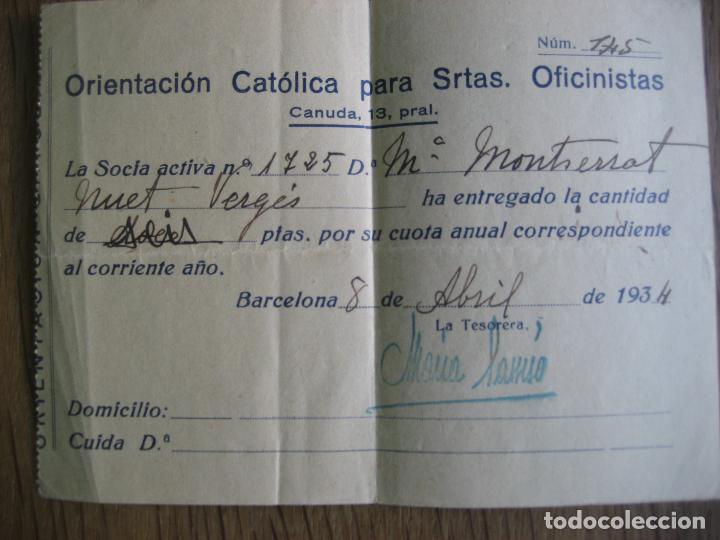 Núm. 145
Orientación Católica para Srtas. Oficinistas
Canuda, 13, pral.
La Socia activa n.º 1725 D.ª Mª Montserrat
Nuet Vergés ha entregado la cantidad
de ptas. por su cuota anual correspondiente
al corriente año.
Barcelona 8 de Abril de 1934
La Tesorera,
Maria
Domicilio:
Cuida D.ª
todocoleccion